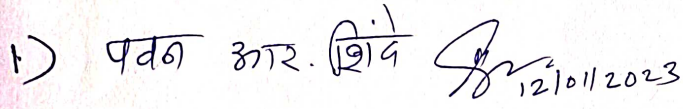 १) पवन आर. शिंदे 12/01/2023